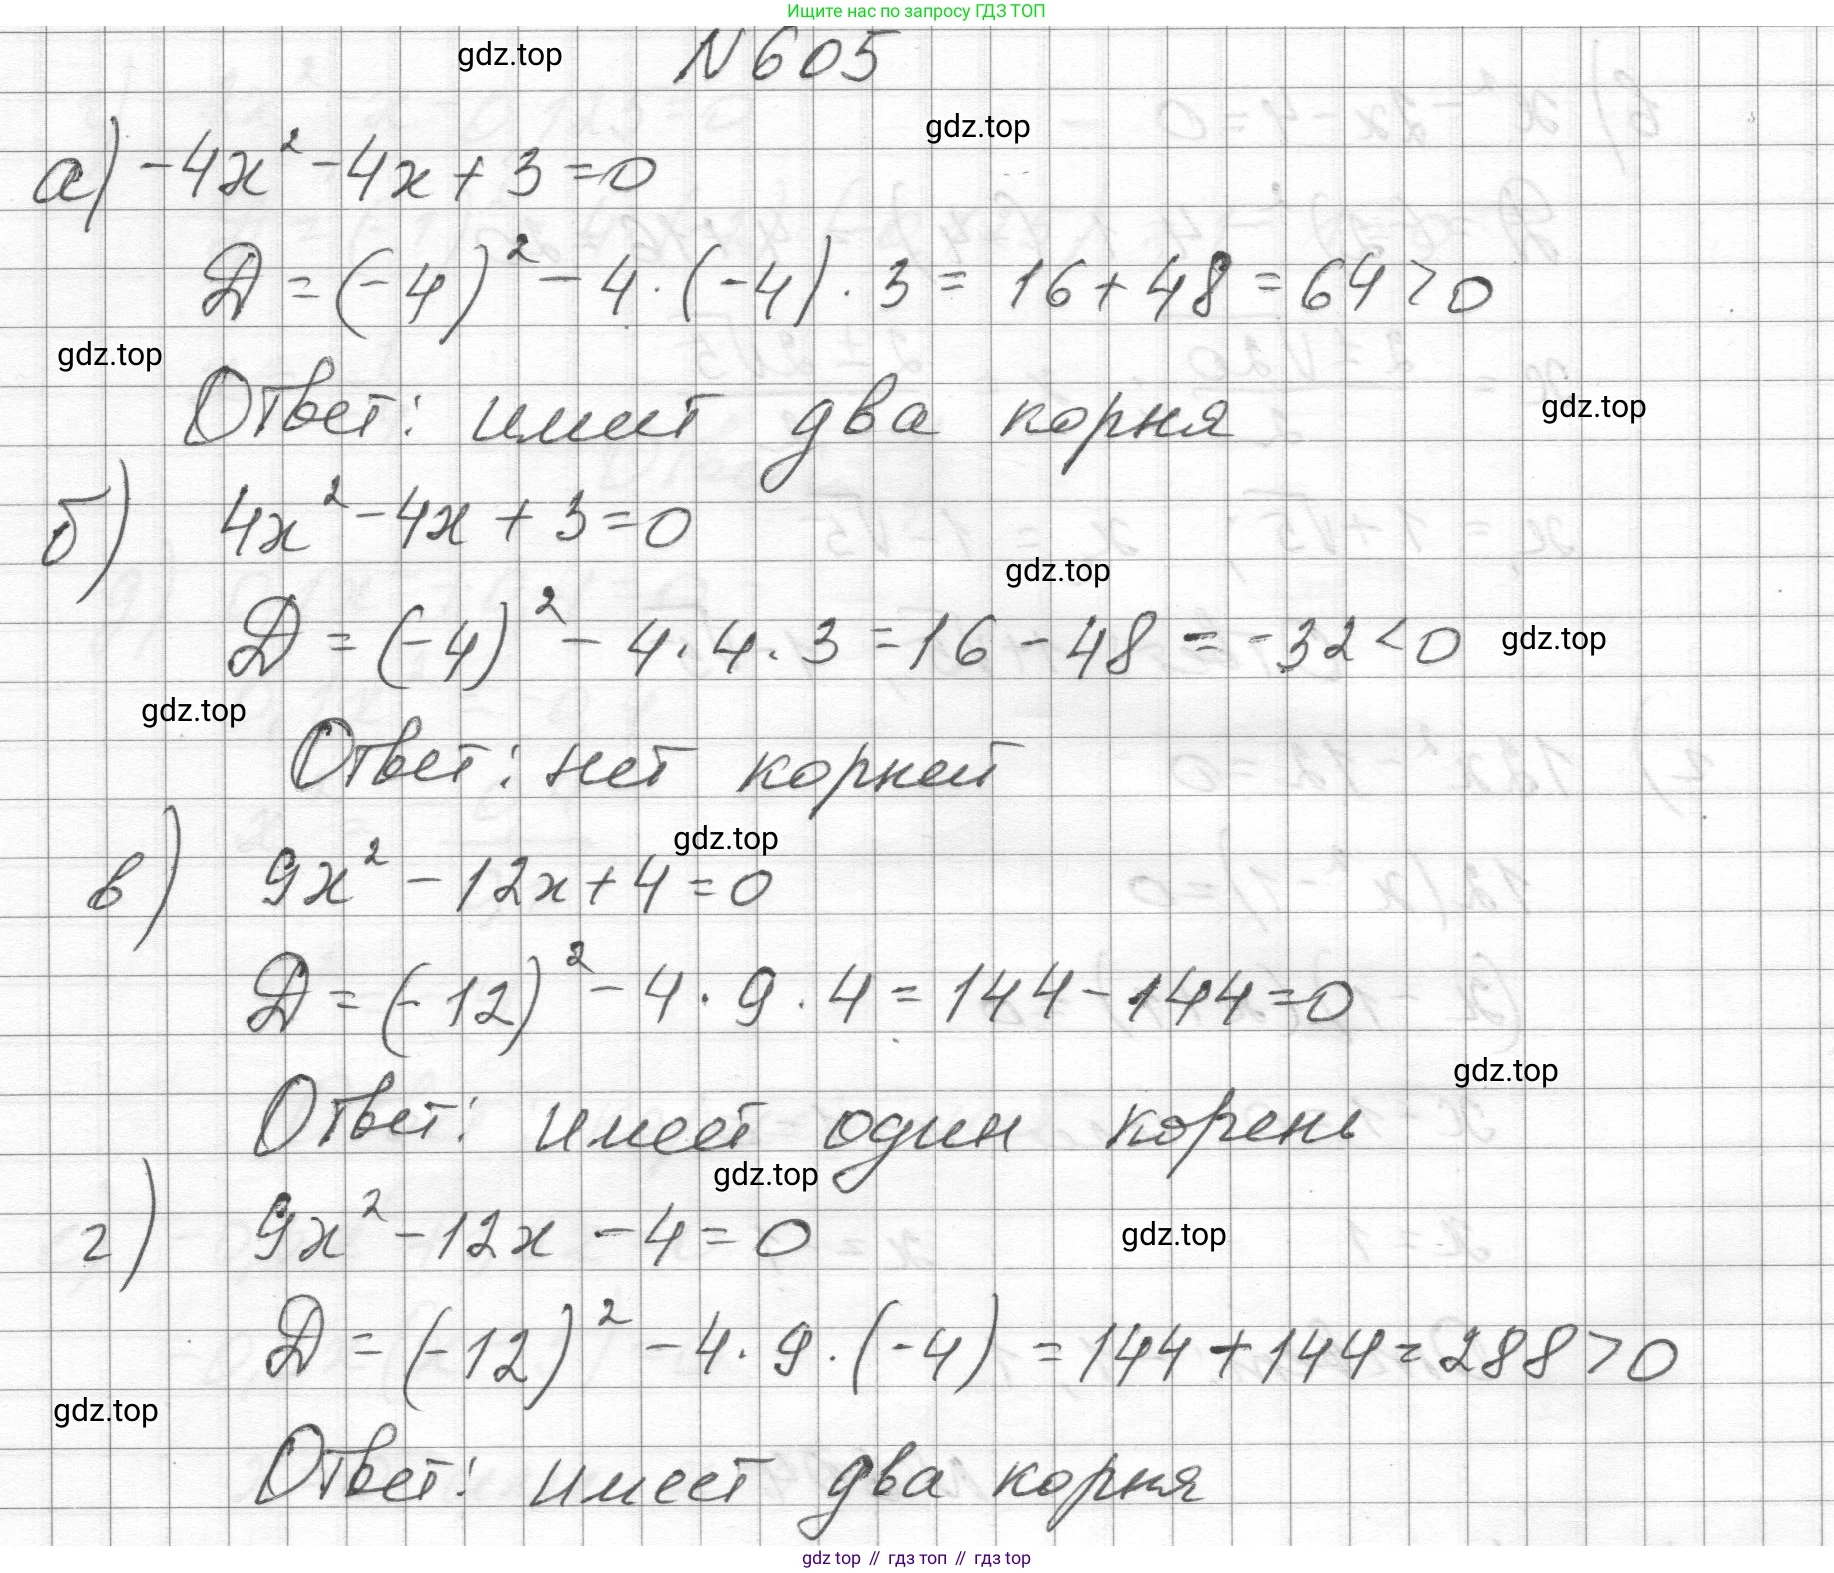 Ищите нас по запросу ГДЗ ТОП
gdz.top
N 605
gdz.top
а) -4x² - 4x + 3 = 0
Д = (-4)² - 4 · (-4) · 3 = 16 + 48 = 64 > 0
gdz.top
Ответ: имеет два корня
gdz.top
б) 4x² - 4x + 3 = 0
gdz.top
Д = (-4)² - 4 · 4 · 3 = 16 - 48 = -32 < 0
gdz.top
gdz.top
Ответ: нет корней
gdz.top
в) 9x² - 12x + 4 = 0
Д = (-12)² - 4 · 9 · 4 = 144 - 144 = 0
gdz.top
Ответ: имеет один корень
gdz.top
г) 9x² - 12x - 4 = 0
gdz.top
Д = (-12)² - 4 · 9 · (-4) = 144 + 144 = 288 > 0
gdz.top
Ответ: имеет два корня
gdz top // гдз топ // гдз top